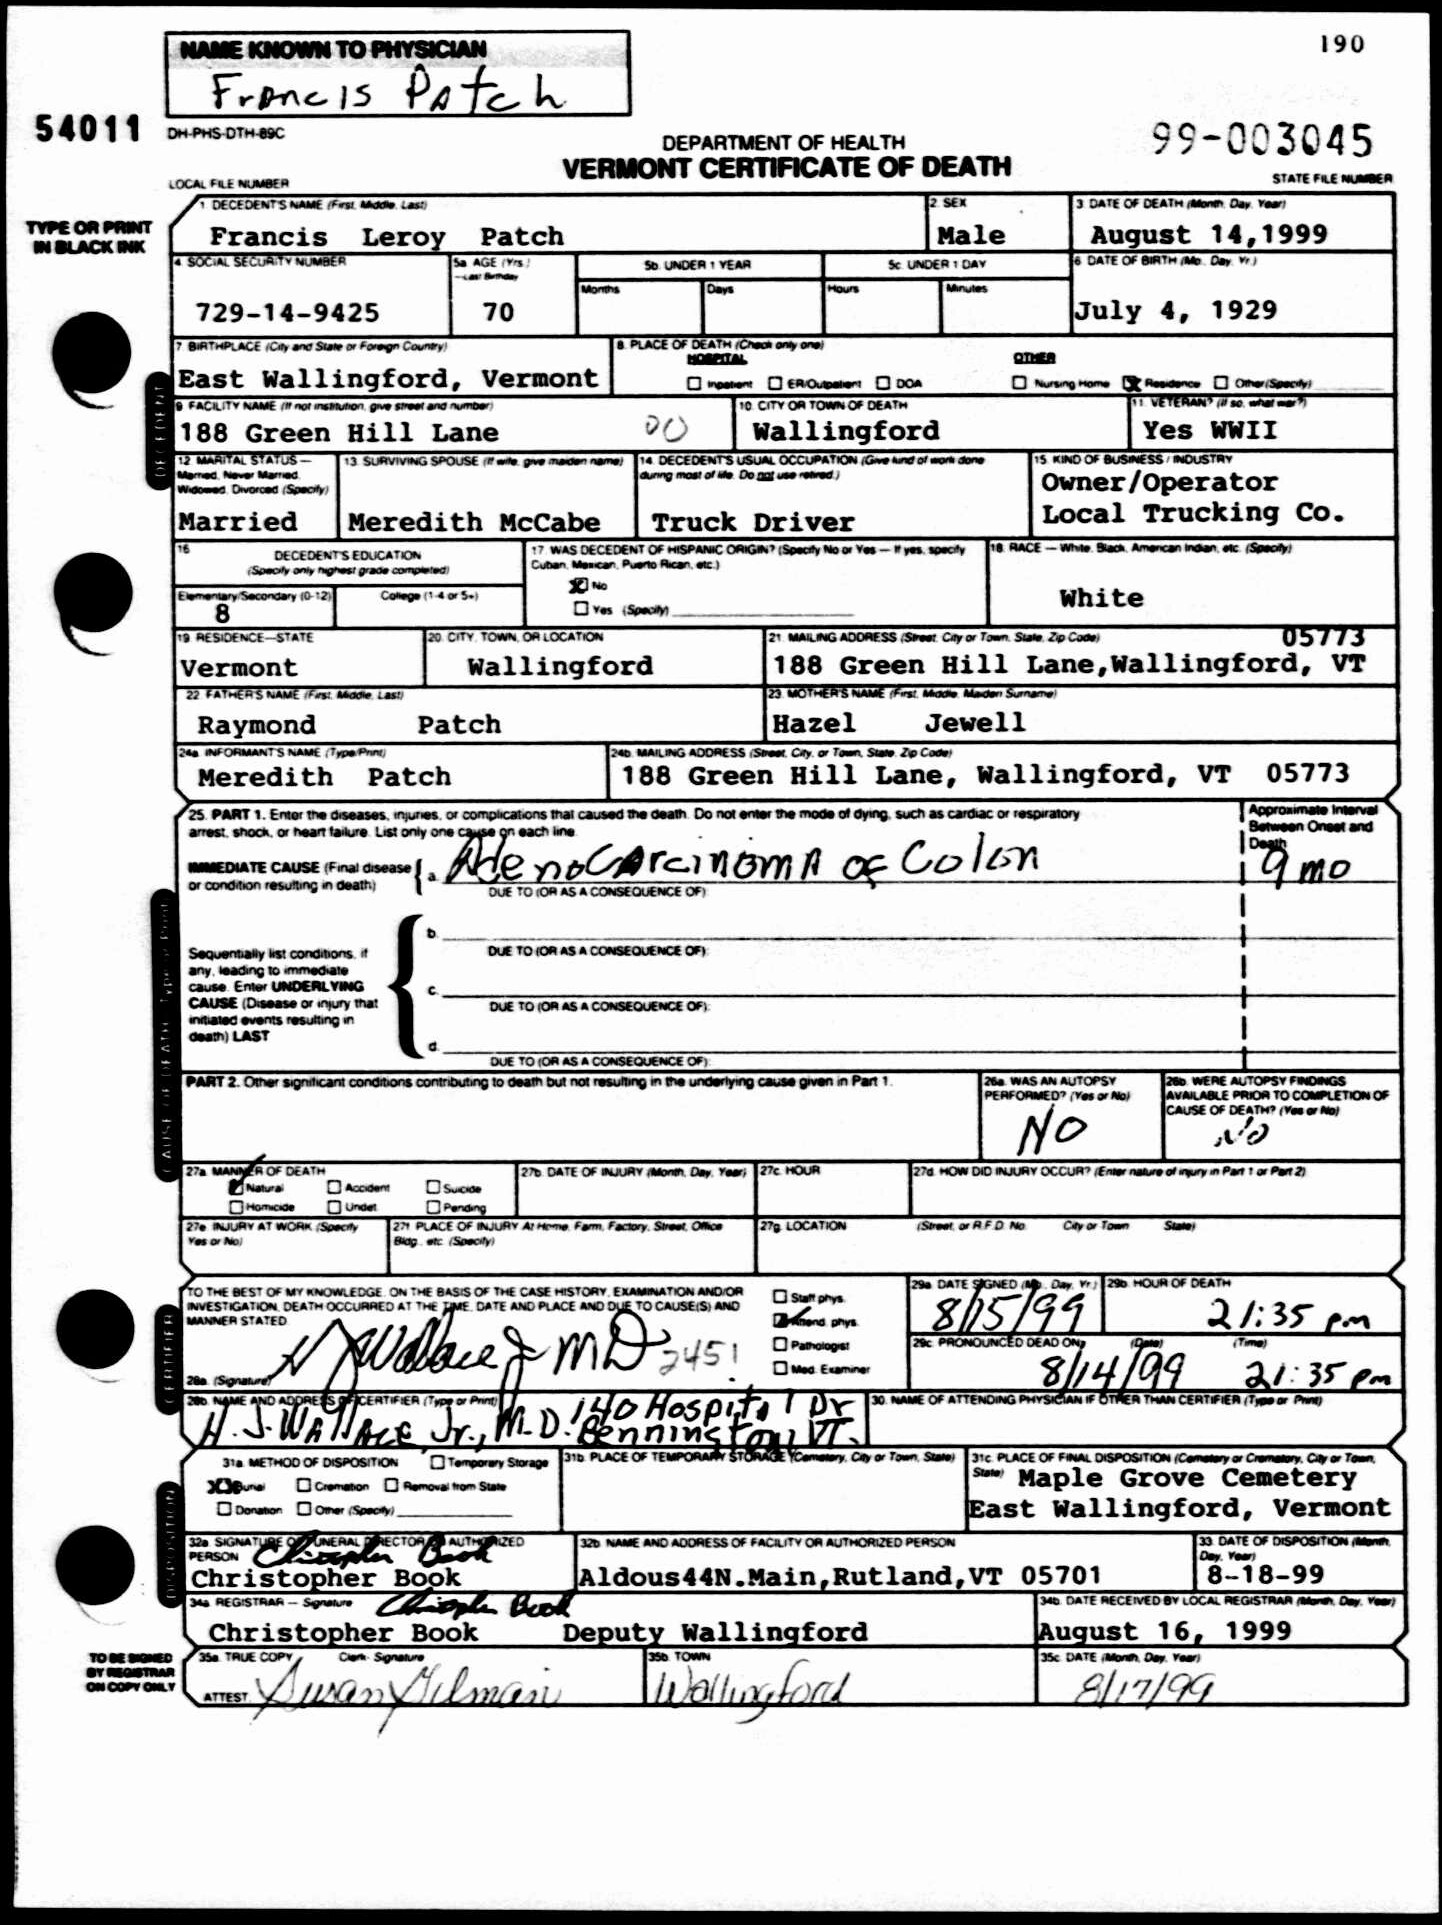 190
NAME KNOWN TO PHYSICIAN
Francis Patch
54011
DH-PHS-DTH-89C
DEPARTMENT OF HEALTH
VERMONT CERTIFICATE OF DEATH
99-003045
LOCAL FILE NUMBER
STATE FILE NUMBER
TYPE OR PRINT
IN BLACK INK
1. DECEDENT'S NAME (First, Middle, Last)
Francis Leroy Patch
2. SEX
Male
3. DATE OF DEATH (Month, Day, Year)
August 14,1999
4. SOCIAL SECURITY NUMBER
729-14-9425
5a. AGE (Yrs.)
—Last Birthday
70
5b. UNDER 1 YEAR
Months Days
5c. UNDER 1 DAY
Hours Minutes
6. DATE OF BIRTH (Mo., Day, Yr.)
July 4, 1929
7. BIRTHPLACE (City and State or Foreign Country)
East Wallingford, Vermont
8. PLACE OF DEATH (Check only one)
HOSPITAL
Inpatient ER/Outpatient DOA
OTHER
Nursing Home Residence Other (Specify)
DECEDENT
9. FACILITY NAME (If not institution, give street and number)
188 Green Hill Lane 00
10. CITY OR TOWN OF DEATH
Wallingford
11. VETERAN? (If so, what war?)
Yes WWII
12. MARITAL STATUS —
Married, Never Married,
Widowed, Divorced (Specify)
Married
13. SURVIVING SPOUSE (If wife, give maiden name)
Meredith McCabe
14. DECEDENT'S USUAL OCCUPATION (Give kind of work done
during most of life. Do not use retired.)
Truck Driver
15. KIND OF BUSINESS / INDUSTRY
Owner/Operator
Local Trucking Co.
16
DECEDENT'S EDUCATION
(Specify only highest grade completed)
Elementary/Secondary (0-12) College (1-4 or 5+)
8
17. WAS DECEDENT OF HISPANIC ORIGIN? (Specify No or Yes — If yes, specify
Cuban, Mexican, Puerto Rican, etc.)
No
Yes (Specify)
18. RACE — White, Black, American Indian, etc. (Specify)
White
19. RESIDENCE—STATE
Vermont
20. CITY, TOWN, OR LOCATION
Wallingford
21. MAILING ADDRESS (Street, City or Town, State, Zip Code)
05773
188 Green Hill Lane,Wallingford, VT
22. FATHER'S NAME (First, Middle, Last)
Raymond Patch
23. MOTHER'S NAME (First, Middle, Maiden Surname)
Hazel Jewell
24a. INFORMANT'S NAME (Type/Print)
Meredith Patch
24b. MAILING ADDRESS (Street, City, or Town, State, Zip Code)
188 Green Hill Lane, Wallingford, VT 05773
CAUSE OF DEATH
25. PART 1. Enter the diseases, injuries, or complications that caused the death. Do not enter the mode of dying, such as cardiac or respiratory
arrest, shock, or heart failure. List only one cause on each line.
Approximate Interval
Between Onset and
Death
IMMEDIATE CAUSE (Final disease
or condition resulting in death)
a. Adenocarcinoma of Colon
9 mo
DUE TO (OR AS A CONSEQUENCE OF):
b.
DUE TO (OR AS A CONSEQUENCE OF):
c.
DUE TO (OR AS A CONSEQUENCE OF):
d.
DUE TO (OR AS A CONSEQUENCE OF):
Sequentially list conditions, if
any, leading to immediate
cause. Enter UNDERLYING
CAUSE (Disease or injury that
initiated events resulting in
death) LAST
PART 2. Other significant conditions contributing to death but not resulting in the underlying cause given in Part 1.
26a. WAS AN AUTOPSY
PERFORMED? (Yes or No)
NO
26b. WERE AUTOPSY FINDINGS
AVAILABLE PRIOR TO COMPLETION OF
CAUSE OF DEATH? (Yes or No)
NO
27a. MANNER OF DEATH
Natural Accident Suicide
Homicide Undet. Pending
27b. DATE OF INJURY (Month, Day, Year)
27c. HOUR
27d. HOW DID INJURY OCCUR? (Enter nature of injury in Part 1 or Part 2)
27e. INJURY AT WORK (Specify
Yes or No)
27f. PLACE OF INJURY At Home, Farm, Factory, Street, Office
Bldg., etc. (Specify)
27g. LOCATION (Street, or R.F.D. No. City or Town State)
CERTIFIER
TO THE BEST OF MY KNOWLEDGE, ON THE BASIS OF THE CASE HISTORY, EXAMINATION AND/OR
INVESTIGATION, DEATH OCCURRED AT THE TIME, DATE AND PLACE AND DUE TO CAUSE(S) AND
MANNER STATED.
28a. (Signature) H J Wallace Jr MD 2451
Staff phys.
Attend. phys.
Pathologist
Med. Examiner
29a. DATE SIGNED (Mo., Day, Yr.)
8/15/99
29b. HOUR OF DEATH
21:35 pm
29c. PRONOUNCED DEAD ON (Date) (Time)
8/14/99 21:35 pm
28b. NAME AND ADDRESS OF CERTIFIER (Type or Print)
H. J. Wallace, Jr., M.D. 140 Hospital Dr
Bennington, VT.
30. NAME OF ATTENDING PHYSICIAN IF OTHER THAN CERTIFIER (Type or Print)
DISPOSITION
31a. METHOD OF DISPOSITION Temporary Storage
Burial Cremation Removal from State
Donation Other (Specify)
31b. PLACE OF TEMPORARY STORAGE (Cemetery, City or Town, State)
31c. PLACE OF FINAL DISPOSITION (Cemetery or Crematory, City or Town,
State) Maple Grove Cemetery
East Wallingford, Vermont
32a. SIGNATURE OF FUNERAL DIRECTOR OR AUTHORIZED
PERSON Christopher Book
Christopher Book
32b. NAME AND ADDRESS OF FACILITY OR AUTHORIZED PERSON
Aldous44N.Main,Rutland,VT 05701
33. DATE OF DISPOSITION (Month,
Day, Year)
8-18-99
34a. REGISTRAR — Signature Christopher Book
Christopher Book Deputy Wallingford
34b. DATE RECEIVED BY LOCAL REGISTRAR (Month, Day, Year)
August 16, 1999
TO BE SIGNED
BY REGISTRAR
ON COPY ONLY
35a. TRUE COPY Clerk- Signature
ATTEST. Susan Gilman
35b. TOWN
Wallingford
35c. DATE (Month, Day, Year)
8/17/99